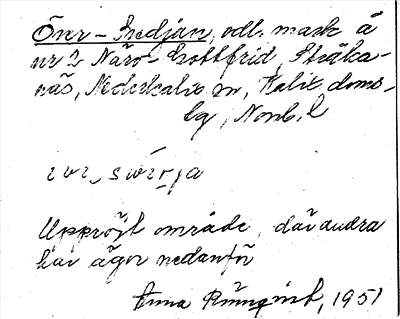 Över-Svedjan, odl. mark å
nr 2 Närv- Gottfrid, Stråka-
näs, Nederkalix sn, Kalix doms-
lg, Norrb. l

Uppröjt område, där andra
har ägor nedanför
Anna Rönnqvist, 1951